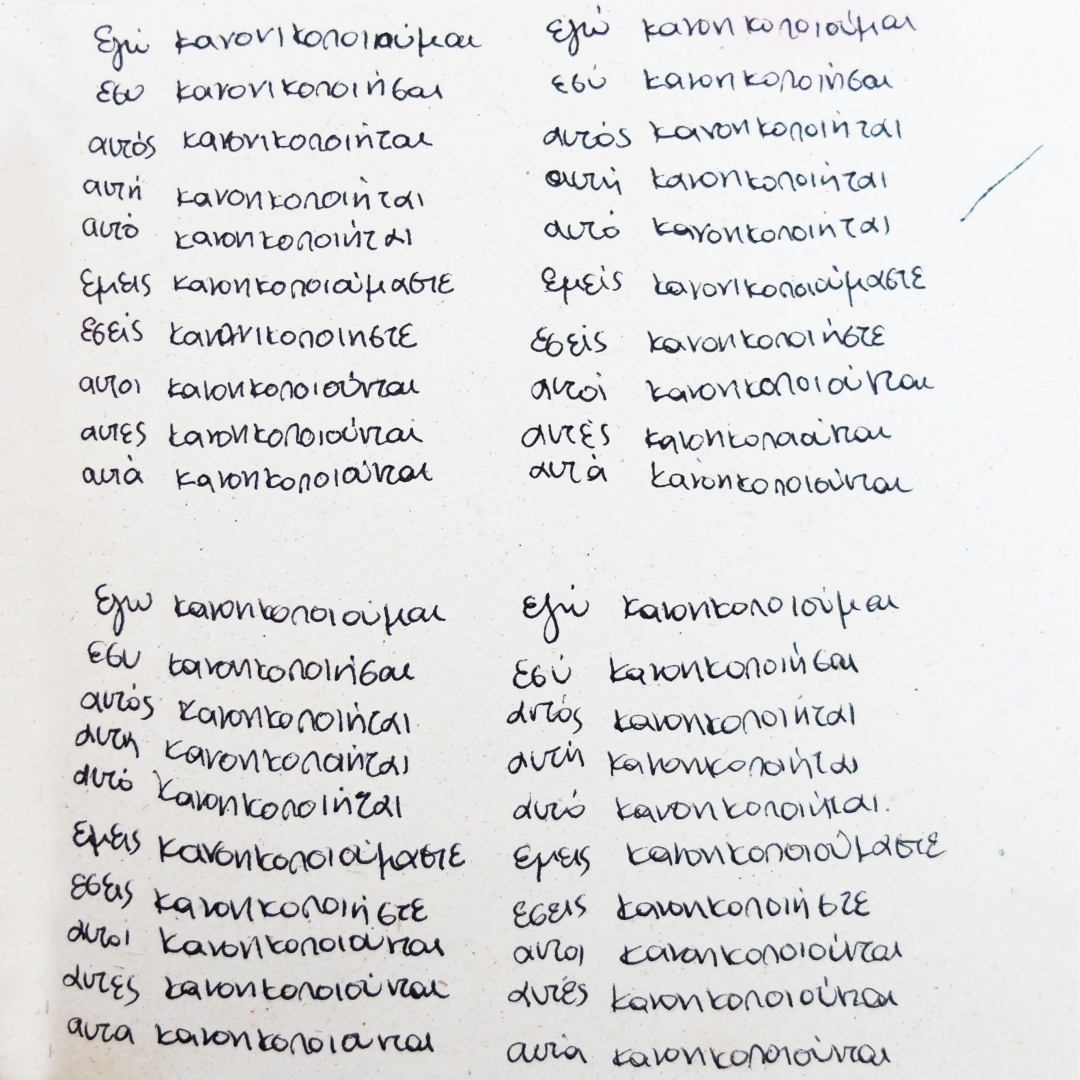 Εγώ κανονικοποιούμαι
εσυ κανονικοποιήσαι
αυτός κανονικοποιήται
αυτή κανονικοποιήται
αυτό κανονικοποιήται
Εμεις κανονικοποιούμαστε
εσείς κανονικοποιηστε
αυτοι κανονικοποιούνται
αυτες κανονικοποιούνται
αυτά κανονικοποιούνται
Εγώ κανονικοποιούμαι
εσύ κανονικοποιήσαι
αυτός κανονικοποιήται
αυτή κανονικοποιήται
αυτό κανονικοποιήται
Εμείς κανονικοποιούμαστε
εσείς κανονικοποιήστε
αυτοί κανονικοποιούνται
αυτές κανονικοποιούνται
αυτά κανονικοποιούνται
Εγω κανονικοποιούμαι
εσυ κανονικοποιήσαι
αυτός κανονικοποιήται
αυτη κανονικοποιήται
αυτό κανονικοποιήται
εμεις κανονικοποιούμαστε
εσεις κανονικοποιήστε
αυτοι κανονικοποιούνται
αυτές κανονικοποιούνται
αυτα κανονικοποιούνται
εγώ κανονικοποιούμαι
εσύ κανονικοποιήσαι
αυτός κανονικοποιήται
αυτή κανονικοποιήται
αυτό κανονικοποιήται.
εμεις κανονικοποιούμαστε
εσεις κανονικοποιήστε
αυτοι κανονικοποιούνται
αυτές κανονικοποιούνται
αυτά κανονικοποιούνται